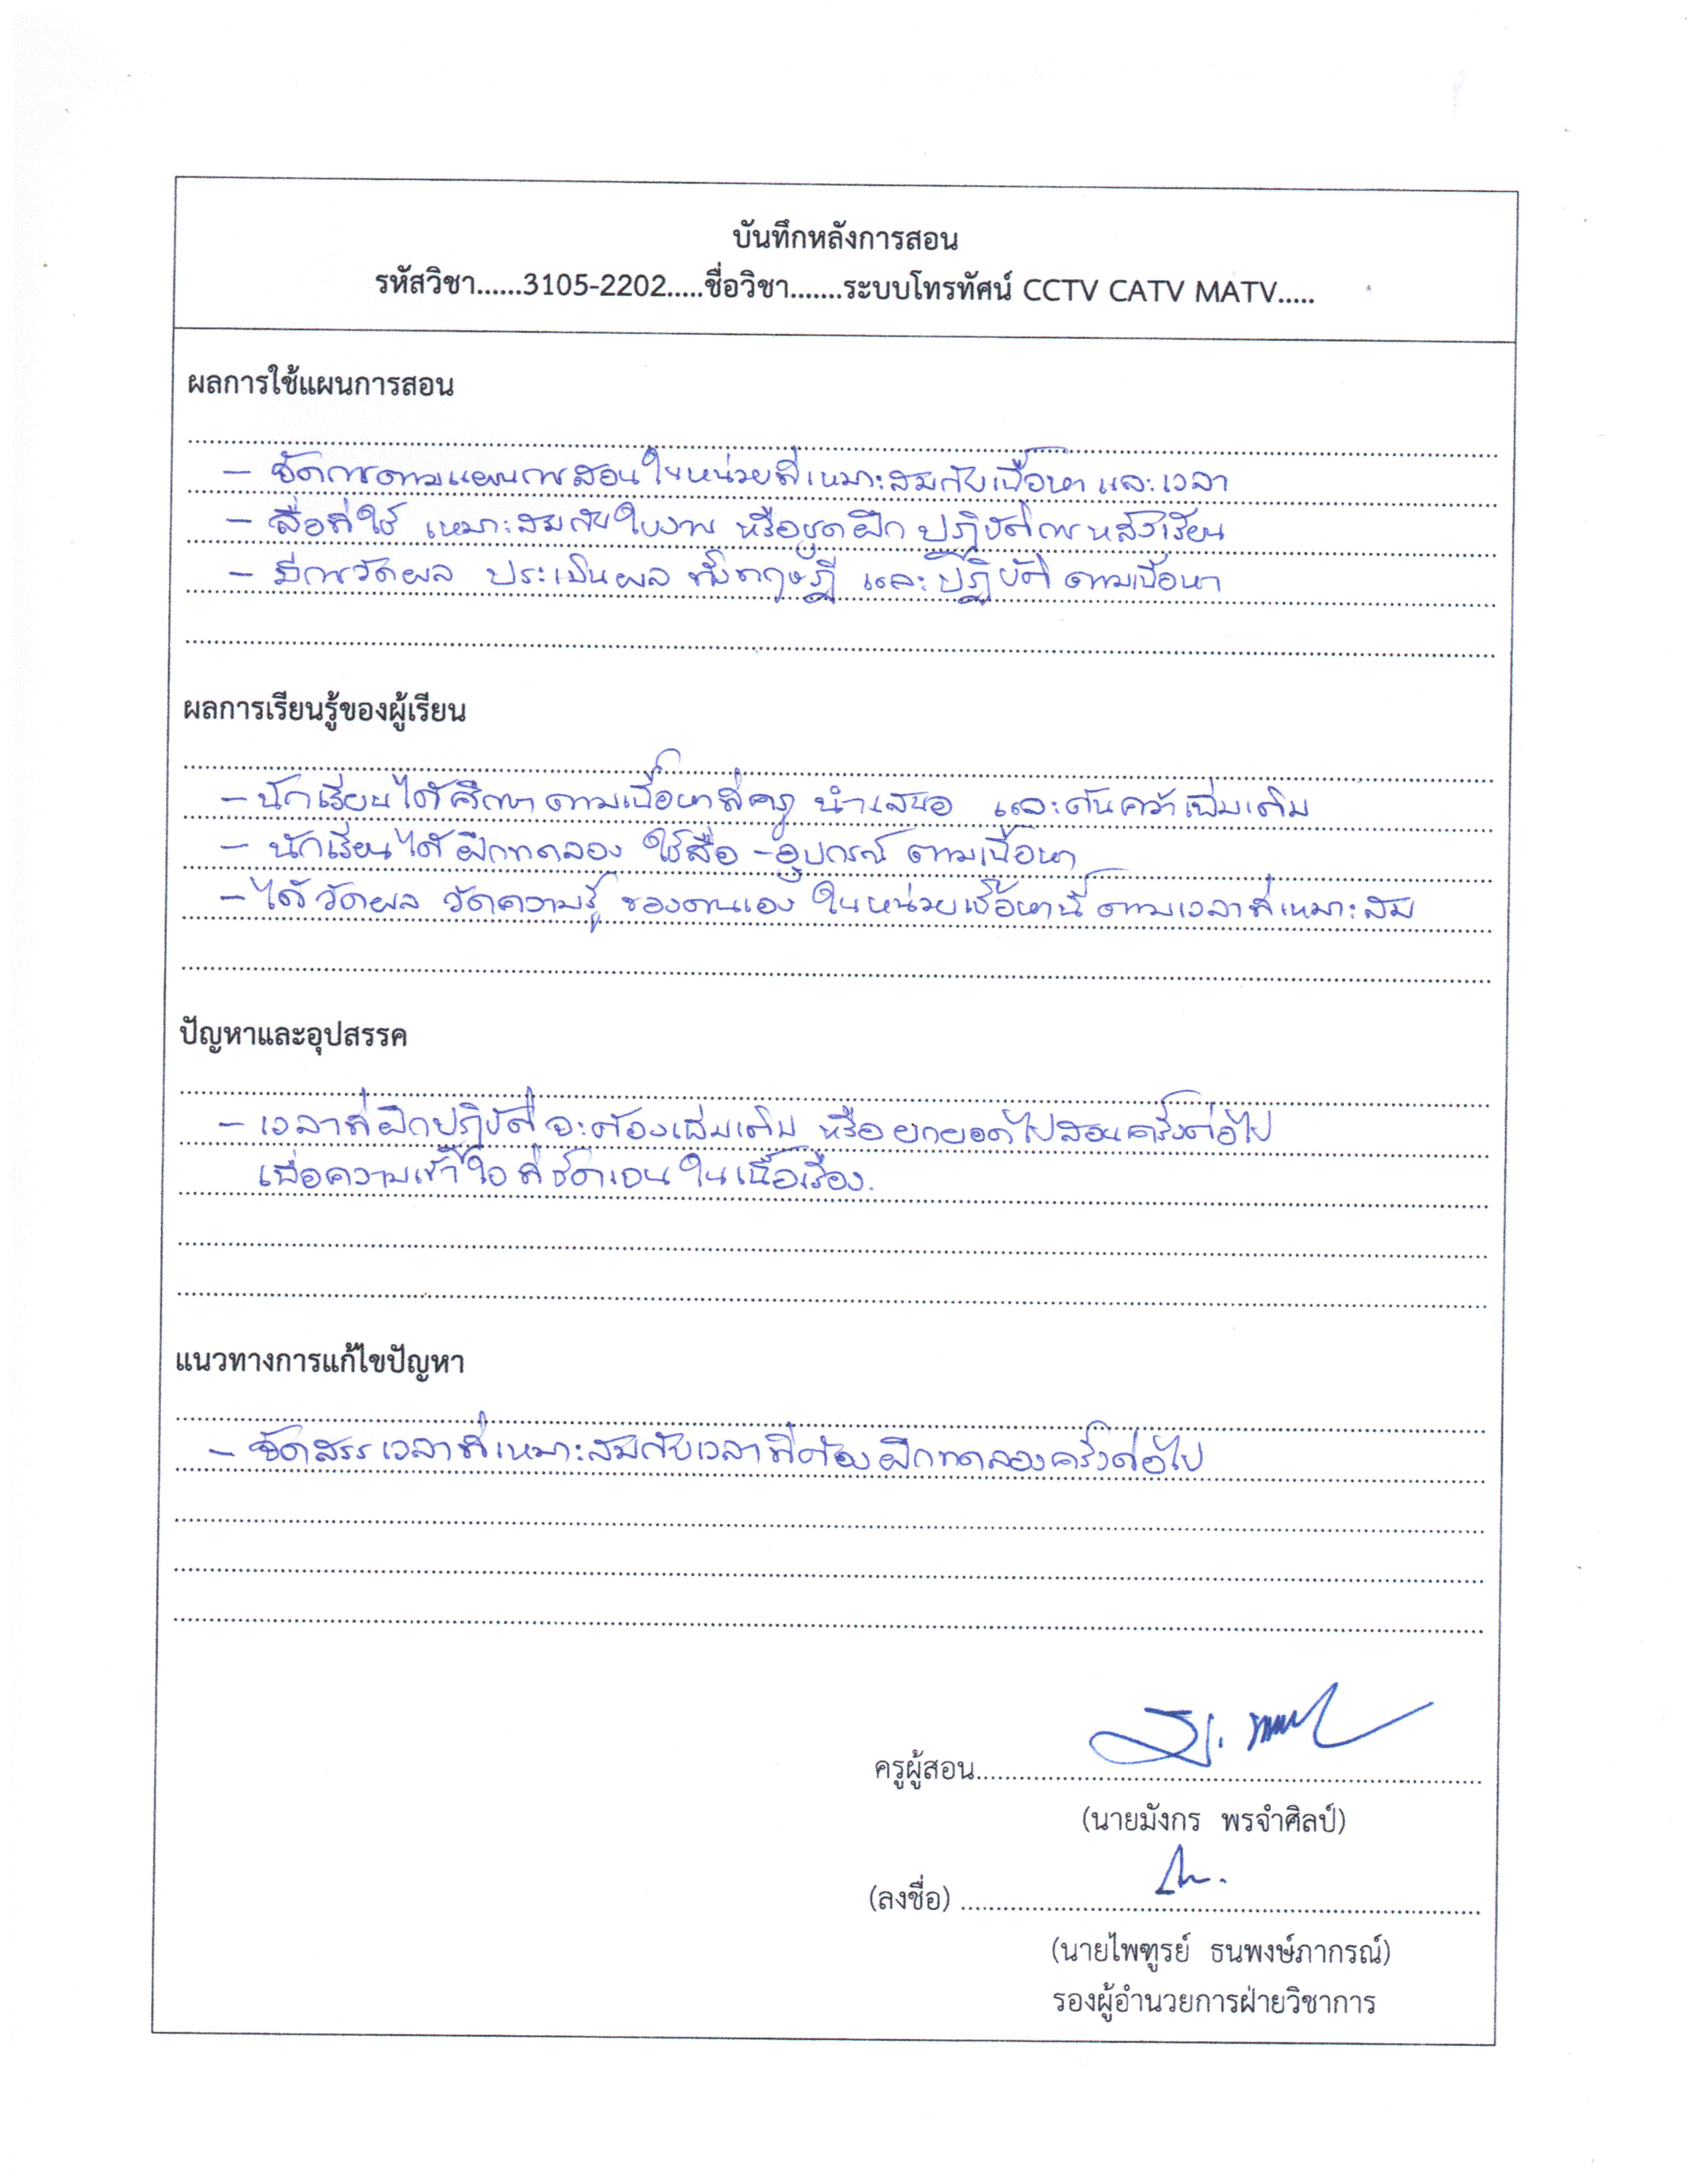 บันทึกหลังการสอน
รหัสวิชา......3105-2202.....ชื่อวิชา.......ระบบโทรทัศน์ CCTV CATV MATV.....
ผลการใช้แผนการสอน
- จัดการตามแผนการสอนในหน่วยที่เหมาะสมกับเนื้อหา และเวลา
- สื่อที่ใช้ เหมาะสมกับใบงาน หรือชุดฝึก ปฏิบัติการ หลังเรียน
- มีการวัดผล ประเมินผล ทั้งทฤษฎี และปฏิบัติ ตามเนื้อหา
ผลการเรียนรู้ของผู้เรียน
- นักเรียนได้ศึกษาตามเนื้อหาที่ครู นำเสนอ และค้นคว้าเพิ่มเติม
- นักเรียนได้ฝึกทดลอง ใช้สื่อ - อุปกรณ์ ตามเนื้อหา
- ได้วัดผล วัดความรู้ ของตนเอง ในหน่วยเนื้อหานี้ ตามเวลาที่เหมาะสม
ปัญหาและอุปสรรค
- เวลาที่ฝึกปฏิบัติจะต้องเพิ่มเติม หรือ ยกยอดไปสอนครั้งต่อไป
เพื่อความเข้าใจ ที่ชัดเจน ในเนื้อเรื่อง.
แนวทางการแก้ไขปัญหา
- จัดสรรเวลาที่เหมาะสมกับเวลาที่ต้องฝึกทดลองครั้งต่อไป
ครูผู้สอน
(นายมังกร พรจำศิลป์)
(ลงชื่อ)
(นายไพฑูรย์ ธนพงษ์ภากรณ์)
รองผู้อำนวยการฝ่ายวิชาการ